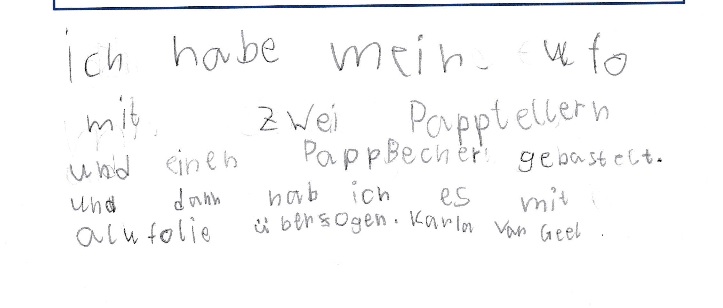 ich habe mein ufo
mit zwei Papptellern
und einen PappBecher gebastelt.
und dann hab ich es mit
alufolie übersogen. Karla Van Geel.